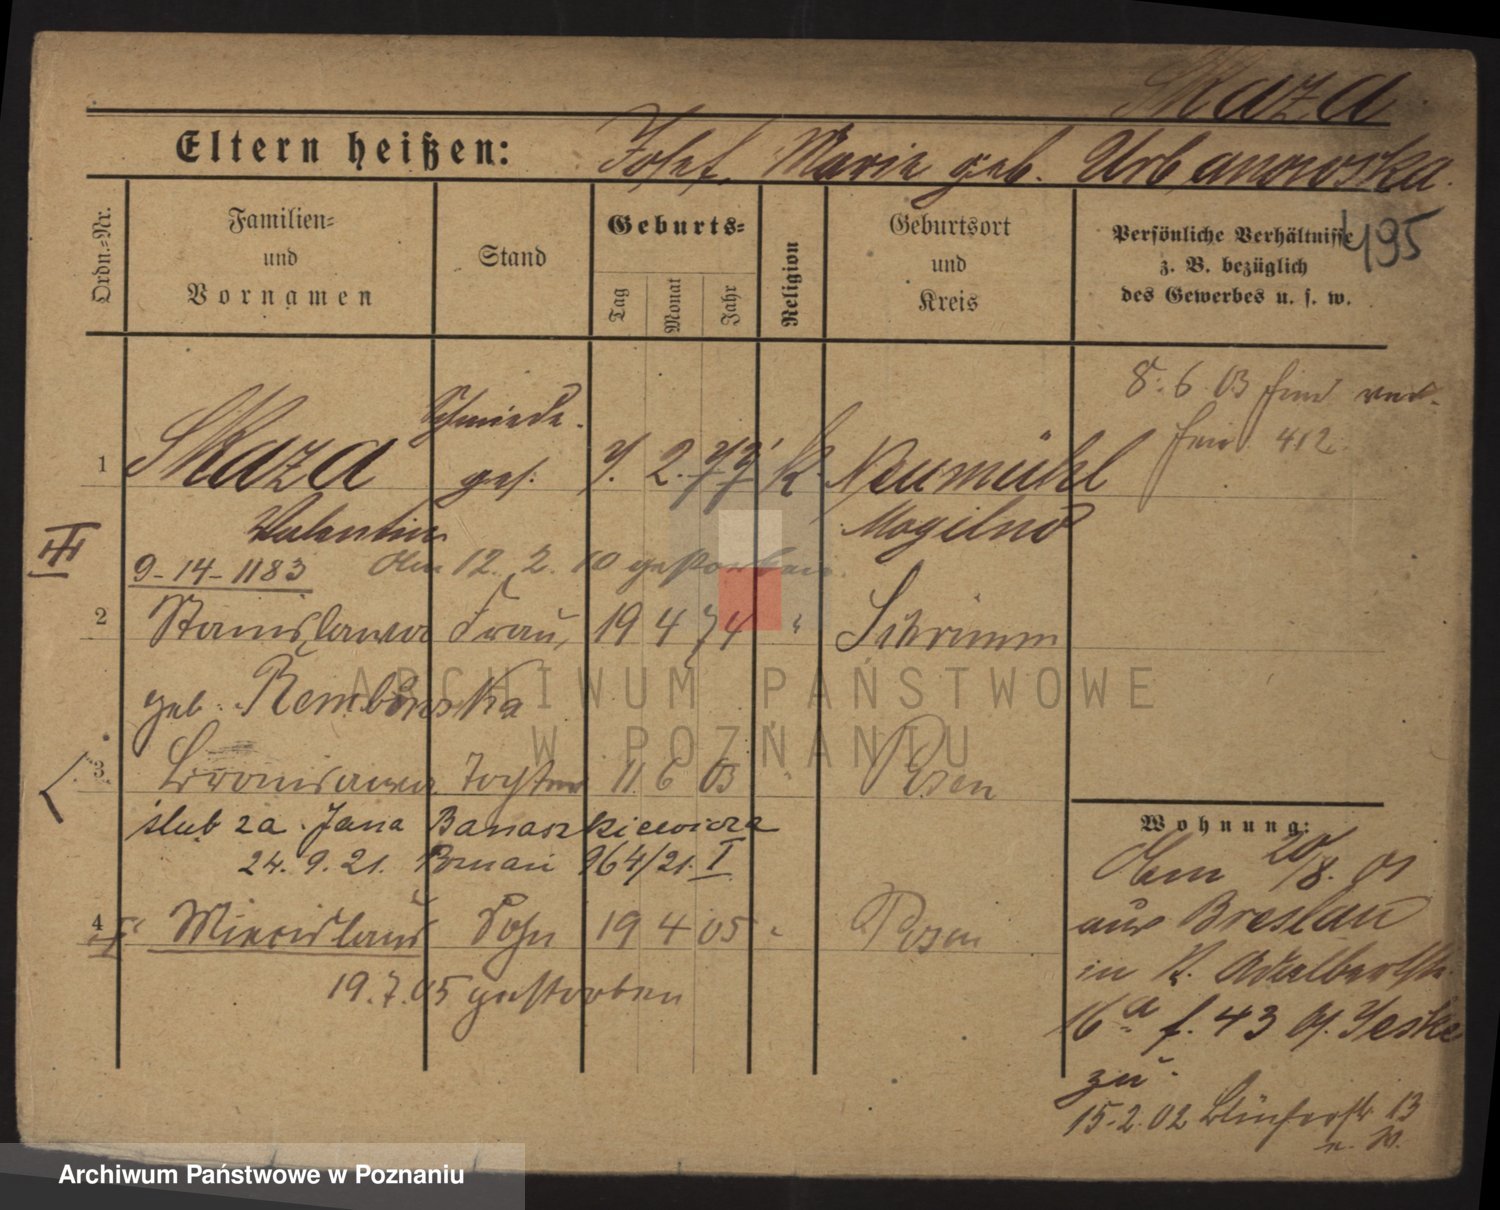 Skaza
Eltern heißen: Josef, Marie geb. Urbanowska.
Ordn.-Nr.
Familien- und Vornamen
Stand
Geburts-
Tag
Monat
Jahr
Religion
Geburtsort und Kreis
Persönliche Verhältnisse z. B. bezüglich des Gewerbes u. s. w.
495
8. 6. 03
412
Schmiede-
1 Skaza ges. 7. 2. 77 K. Neumühl
Valentin Mogilno
III
9-14-1183 12. 2. 10 gestorben
2 Stanislawa Frau, 19 4 74 " Schrimm
geb. Rembowska
3 Bronislawa Tochter 11 6 03 " Posen
ślub za Jana Banaszkiewicza
24. 9. 21. Poznań 964/21. I
4 Miecislaus Sohn 19 4 05 " Posen
19. 7. 05 gestorben
Wohnung:
20/8. 01
aus Breslau
in K. Adalbertstr.
16a f. 43 Jeske
zu.
15. 2. 02 13
ARCHIWUM PAŃSTWOWE
W POZNANIU
Archiwum Państwowe w Poznaniu